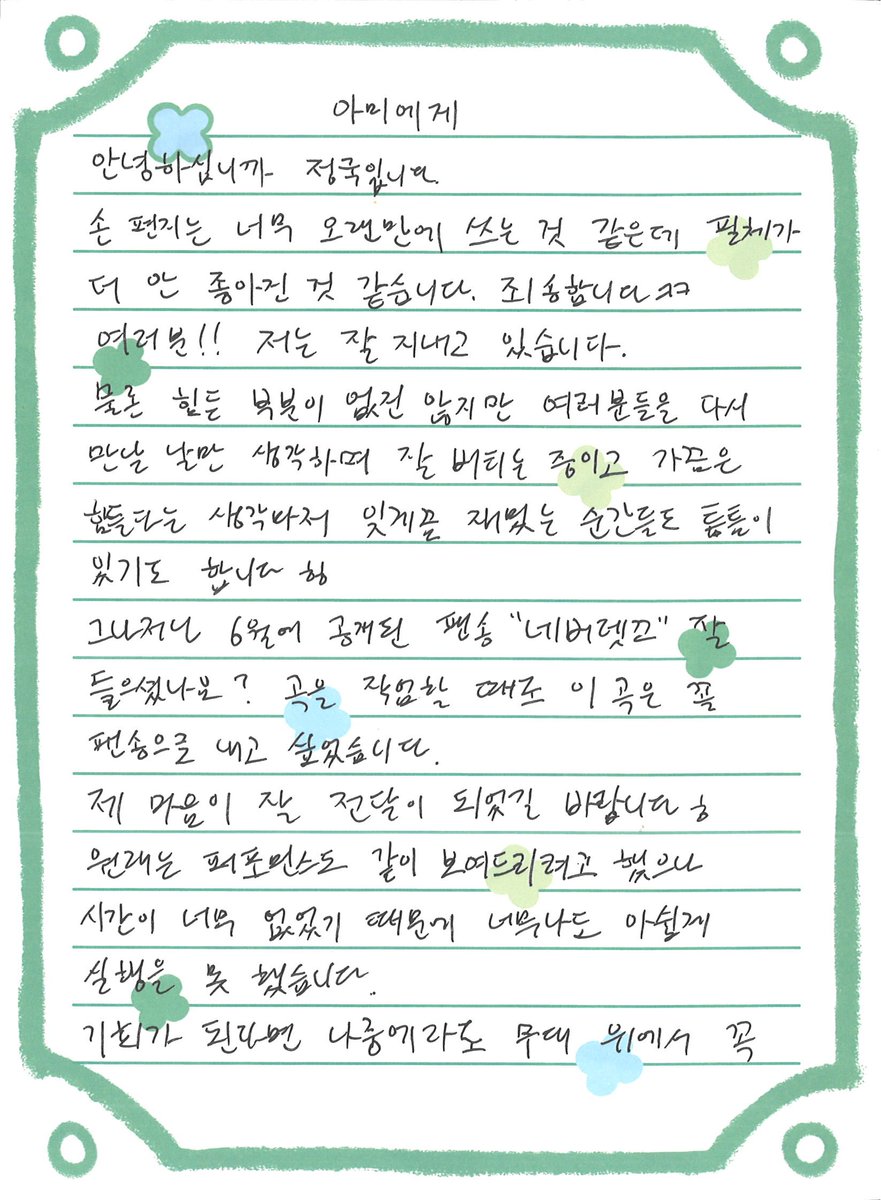 아미에게
안녕하십니까 정국입니다.
손 편지는 너무 오랜만에 쓰는 것 같은데 필체가
더 안 좋아진 것 같습니다. 죄송합니다ㅋㅋ
여러분!! 저는 잘 지내고 있습니다.
물론 힘든 부분이 없진 않지만 여러분들을 다시
만날 날만 생각하며 잘 버티는 중이고 가끔은
힘들다는 생각마저 잊게끔 재밌는 순간들도 틈틈이
있기도 합니다 ㅎㅎ
그나저나 6월에 공개된 팬송 "네버렛고" 잘
들으셨나요? 곡을 작업할 때도 이 곡은 꼭
팬송으로 내고 싶었습니다.
제 마음이 잘 전달이 되었길 바랍니다 ㅎ
원래는 퍼포먼스도 같이 보여드리려고 했으나
시간이 너무 없었기 때문에 너무나도 아쉽게
실행을 못 했습니다.
기회가 된다면 나중에라도 무대 위에서 꼭